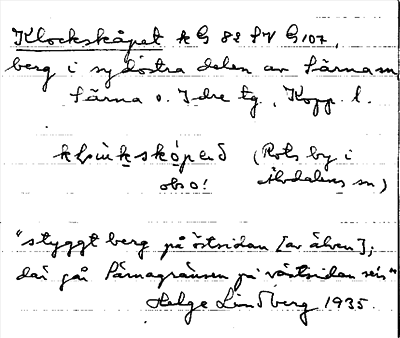 Klockskåpet k G 88 SV G 107,
berg i sydöstra delen av Särna sn
Särna o. Idre tg., Kopp. l.
(Rots by i
obs o! Älvdalens sn)
"styggt berg på östsidan [av älven];
där går Särnagränsen på västsidan
Helge Lindberg 1935.